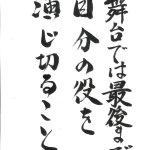 舞台では最後まで
自分の役を
演じ切ること